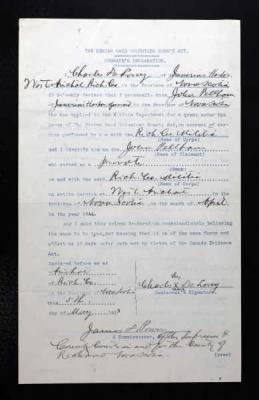 THE FENIAN RAID VOLUNTEER BOUNTY ACT.
COMRADE'S DECLARATION.
I, Charles De Coney of Janvrins Hbr.
West Arichat Rich Co. Nova Scotia
do solemnly declare that I personally know John Pelham
of Janvrins Harbor formerly of Nova Scotia
who has applied to the Militia Department for a grant under the
terms of the Fenian Raid Volunteer Bounty Act, on account of service
performed by him with the Rich Co Militia
(Name of Corps)
and I identify him as the John Pelham
(Name of Claimant)
who served as a private
in the Rich Co Militia
(Name of Corps)
on active service at West Arichat in the
Province of Nova Scotia in the month of April
in the year 1866.
And I make this solemn declaration conscientiously believing
the same to be true, and knowing that it is of the same force and
effect as if made under oath and by virtue of the Canada Evidence
Act.
Declared before me at
Arichat
in Rich Co.
in the Province of Nova Scotia
this 5th
day of May 1913
Charles X De Coney
Declarant's Signature.
James
A Commissioner, of the Supreme &
County Court in and for the County of
Richmond Nova Scotia
(over)